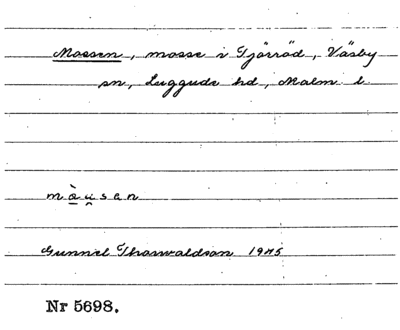 Mossen, mosse i Tjörröd, Väsby
sn, Luggude hd, Malm. l.
mòu̯sen
Gunnel Thorwaldson 1945
Nr 5698.